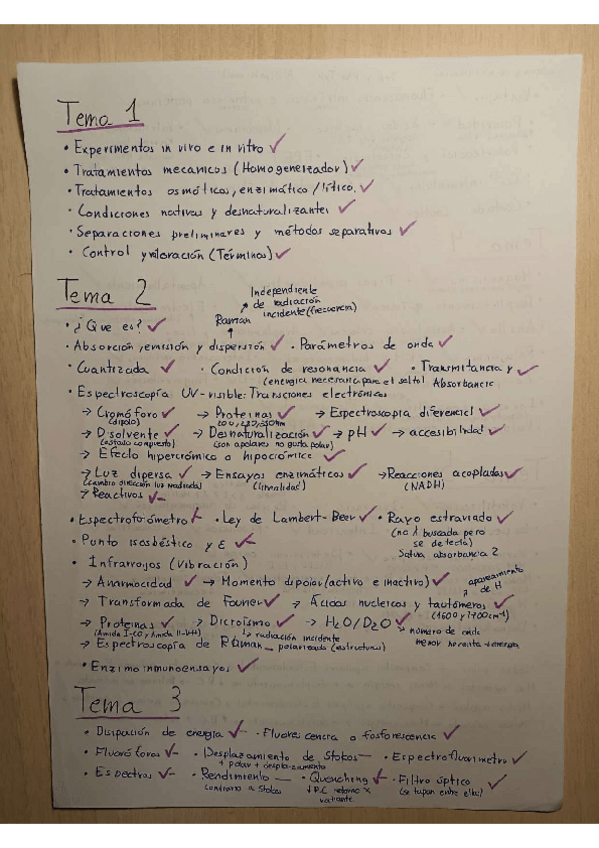 Tema 1
• Experimentos in vivo e in vitro ✓
• Tratamientos mecánicos (Homogeneizador) ✓
• Tratamientos osmóticos, enzimático / lítico. ✓
• Condiciones nativas y desnaturalizantes ✓
• Separaciones preliminares y métodos separativos ✓
• Control y valoración (Términos) ✓
Tema 2
Independiente
de radiación
incidente (frecuencia)
Raman
• ¿Que es? ✓
• Absorción, emisión y dispersión ✓ • Parámetros de onda ✓
• Cuantizada ✓ • Condición de resonancia ✓ • Transmitancia y ✓
(energía necesaria para el salto) Absorbancia
• Espectroscopía UV-visible: Transiciones electrónicas
→ Cromóforo ✓ → Proteínas ✓ → Espectroscopia diferencial ✓
(dipolo)
→ Disolvente ✓ → Desnaturalización ✓ → pH ✓ → accesibilidad ✓
(estado compuesto) (son apolares no gusta polar)
→ Efecto hipercrómico o hipocrómico ✓
→ Luz dispersa ✓ → Ensayos enzimáticos ✓ → Reacciones acopladas ✓
(cambio dirección luz radiada) (linealidad) (NADH)
→ Reactivos ✓–
• Espectrofotómetro ✓– • Ley de Lambert-Beer ✓ • Rayo extraviado ✓
(no λ buscada pero
se detecta)
• Punto isosbéstico y ε ✓–
Salva absorbancia 2
• Infrarrojos (Vibración)
→ Anarmocidad ✓ → Momento dipolar (activo e inactivo) ✓
apareamiento
de H
→ Transformada de Fourier ✓ → Ácidos nucleicos y tautómeros ✓
(1600 y 1700cm⁻¹)
→ Proteínas ✓ → Dicroísmo ✓ → H₂O/D₂O ✓
(Amida I-CO y Amida II-NH)
radiación incidente
polarizada (estructuras)
número de onda
menor necesita + energía
→ Espectroscopía de Raman
• Enzimoinmunoensayos ✓
Tema 3
• Disipación de energía ✓– • Fluorescencia o fosforescencia ✓
• Fluoróforos ✓– • Desplazamiento de Stokes — • Espectrofluorímetro ✓
+ polar + desplazamiento
• Espectros ✓– • Rendimiento — • Quenching ✓– • Filtro óptico ✓
contrario a Stokes
(se tapan entre ellas)